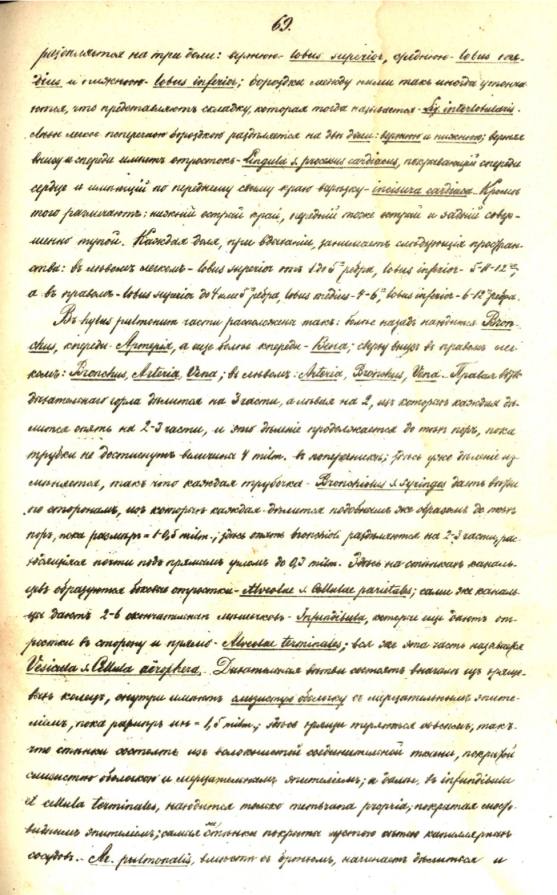 69.
раздѣляется на три доли: верхнюю - lobus superior, среднюю - lobus me-
dius и нижнюю - lobus inferior; бороздки между ними такъ иногда утонча
ются, что представляютъ складку, которая тогда называется - lig. interlobularis.
Лѣвое легкое поперечною бороздкою раздѣляется на двѣ доли: верхнюю и нижнюю; верхняя
внизу и спереди имѣетъ отростокъ - Lingula s. processus cardiacus, покрывающій спереди
сердце и имѣющій по переднему своему краю вырѣзку - incisura cardiaca. Кромѣ
того различаютъ: нижній острый край, передній тоже острый и задній совер-
шенно тупой. Каждая доля, при вдыханіи, занимаетъ слѣдующія простран-
ства: въ лѣвомъ легкомъ - lobus superior отъ 1 до 5го ребра, lobus inferior - 5-11-12го,
а въ правомъ - lobus superior до 4 или 5го ребра, lobus medius - 4-6го, lobus inferior - 6-12го ребра.
Въ hylus pulmonum части расположены такъ: болѣе назадъ находится Bron-
chus, кпереди - Артерія, а еще болѣе кпереди - Вена; сверху внизъ въ правомъ лег
комъ: Bronchus, Arteria, Vena; въ лѣвомъ: Arteria, Bronchus, Vena. Правая вѣтвь
дыхательнаго горла дѣлится на 3 части, а лѣвая на 2, изъ которыхъ каждая дѣ-
лится опять на 2-3 части, и это дѣленіе продолжается до тѣхъ поръ, пока
трубки не достигнутъ величины 4 milm. въ поперечникѣ; здѣсь уже дѣленіе из
мѣняется, такъ что каждая трубочка - Bronchiolus s. Syringes даетъ вѣтви
по сторонамъ, изъ которыхъ каждая дѣлится подобнымъ же образомъ до тѣхъ
поръ, пока размѣръ = 1-0,5 milm.; здѣсь опять bronchioli раздѣляются на 2-3 части, рас
ходящіяся почти подъ прямымъ угломъ до 0,3 milm. Здѣсь на стѣнкахъ каналь-
цевъ образуются боковые отростки - Alveolae s. Cellulae parietales; сами же каналь-
цы даютъ 2-6 окончательныхъ мѣшечковъ - Infundibula, которые еще даютъ от
ростки въ сторону и прямо - Alveolae terminales; вся же эта часть называется
Vesicula s. Cellula aërophora. Дыхательныя вѣтви состоятъ вначалѣ изъ хряще-
выхъ колецъ, снутри имѣютъ слизистую оболочку съ мерцательнымъ эпите-
ліемъ, пока размѣръ ихъ = 1,5 milm.; здѣсь хрящи теряются совсѣмъ, такъ-
что стѣнки состоятъ изъ волокнистой соединительной ткани, покрытой
слизистою оболочкою и мерцательнымъ эпителіемъ; а далѣе, въ infundibula
et cellula terminales, находится только membrana propria, покрытая
виднымъ эпителіемъ; самыя же стѣнки покрыты густою сѣтью капиллярныхъ
сосудовъ. - Ar. pulmonalis, вмѣстѣ съ бронхомъ, начинаетъ дѣлиться и